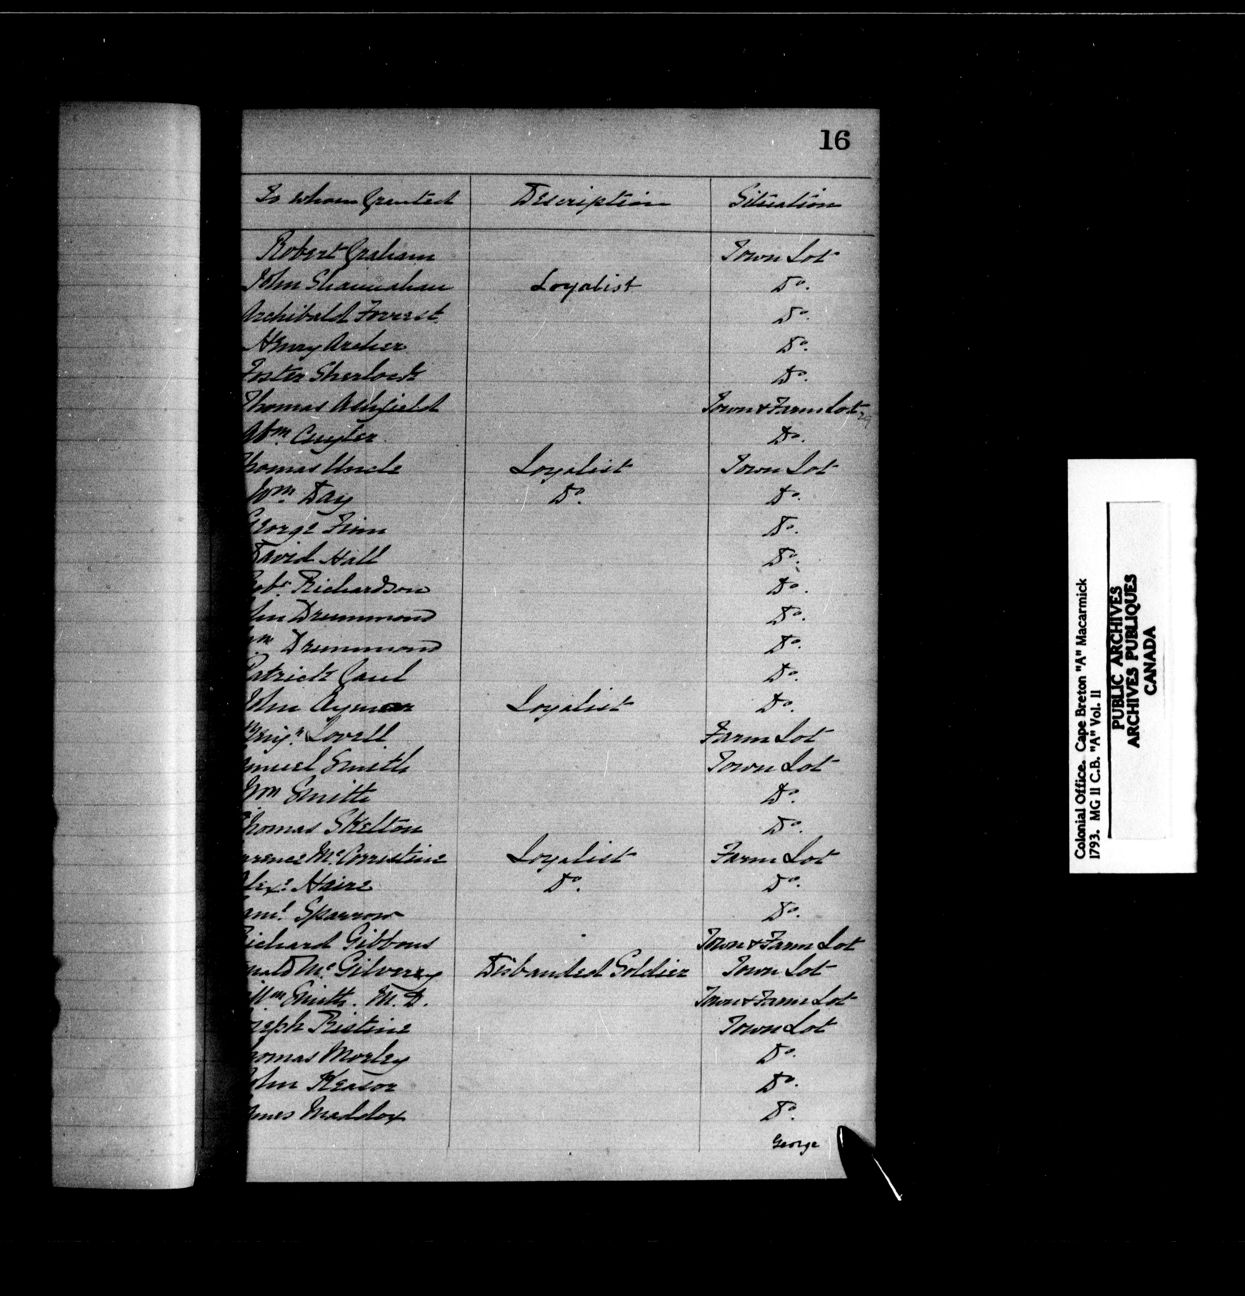 16
To whom Granted Description Situation
Robert Graham Town Lot
John Shannahan Loyalist Do.
Archibald Forrest Do.
Henry Archer Do.
Foster Sherlock Do.
Thomas Ashfield Town & Farm Lot
Wm Cuyler Do.
Thomas Uncle Loyalist Town Lot
Wm Day Do. Do.
George Finn Do.
David Hall Do.
Robt. Richardson Do.
John Drummond Do.
Wm Drummond Do.
Patrick Gaul Do.
John Aymar Loyalist Do.
Benjn. Lovell Farm Lot
Samuel Smith Town Lot
Wm Smith Do.
Thomas Skelton Do.
Larence McCorristine Loyalist Farm Lot
Alexr. Haire Do. Do.
Saml. Sparrow Do.
Richard Gibbons Town & Farm Lot
Donald McGilvery Disbanded Soldier Town Lot
Willm Smith. M.D. Town & Farm Lot
Joseph Ristine Town Lot
Thomas Morley Do.
John Keasor Do.
James Maddox Do.
George
Colonial Office. Cape Breton "A" Macarmick
1793. MG 11 C.B. "A" Vol. 11
PUBLIC ARCHIVES
ARCHIVES PUBLIQUES
CANADA